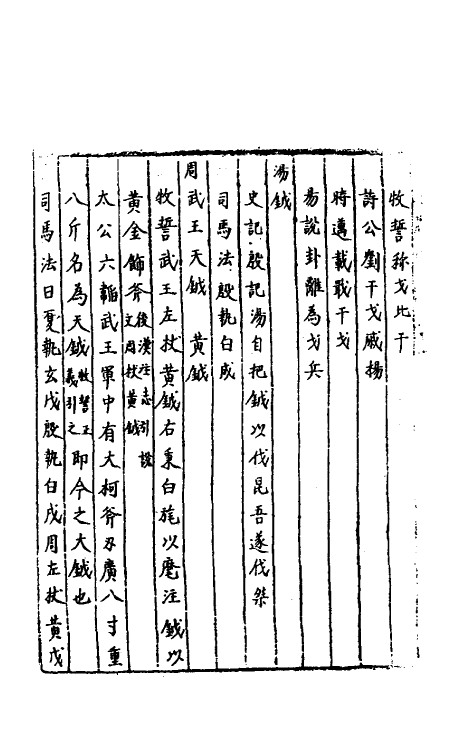 牧誓稱戈比干
詩公劉干戈戚揚
時邁載戢干戈
易說卦離為戈兵
湯鉞
史記殷記湯自把鉞以伐昆吾遂伐桀
司馬法殷執白戚
周武王天鉞　黃鉞
牧誓武王左杖黃鉞右秉白旄以麾注鉞以
黃金飾斧後漢注志引說文周杖黃鉞
太公六韜武王軍中有大柯斧刃廣八寸重
八斤名為天鉞牧誓正義引之即今之大鉞也
司馬法曰夏執玄戉殷執白戉周左杖黃戉